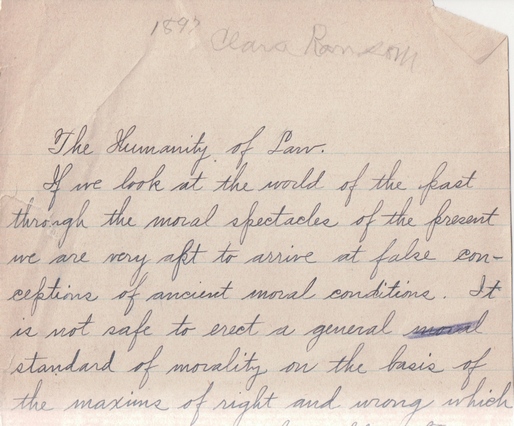 1897 Clara Ransom
The Humanity of Law.
If we look at the world of the past
through the moral spectacles of the present
we are very apt to arrive at false con-
ceptions of ancient moral conditions. It
is not safe to erect a general moral
standard of morality on the basis of
the maxims of right and wrong which